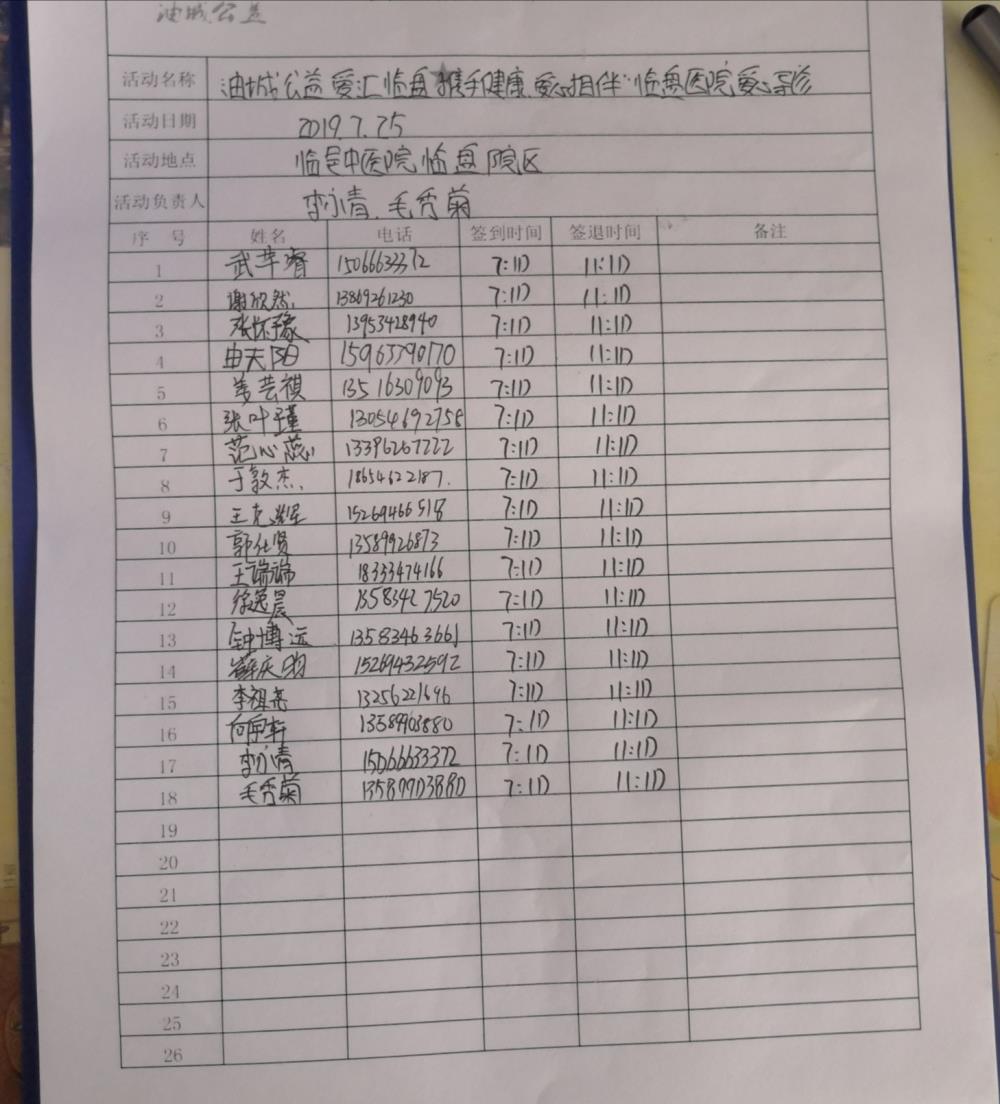 油城公益
活动名称 油城公益爱汇临盘"携手健康,爱心相伴"临盘医院爱心导诊
活动日期 2019.7.25
活动地点 临邑中医院临盘院区
活动负责人 李小青、毛秀菊
序 号 姓名 电话 签到时间 签退时间 备注
1 武芊睿 15066633372 7:10 11:10
2 谢欣然 13869261230 7:10 11:10
3 张怀豫 13953428940 7:10 11:10
4 由天阳 15963390170 7:10 11:10
5 姜芸祺 13516309093 7:10 11:10
6 张叶瑾 13054692758 7:10 11:10
7 范心蕊 13396267222 7:10 11:10
8 于敦杰 18654622187 7:10 11:10
9 王克 15269466518 7:10 11:10
10 郭仕贤 13589926873 7:10 11:10
11 王端端 18333474166 7:10 11:10
12 徐逸晨 13583427520 7:10 11:10
13 钟博远 13583463661 7:10 11:10
14 薛庆 15269432592 7:10 11:10
15 李祖亮 13256221696 7:10 11:10
16 轩 13589903880 7:10 11:10
17 李小青 15066633372 7:10 11:10
18 毛秀菊 13589903880 7:10 11:10
19
20
21
22
23
24
25
26